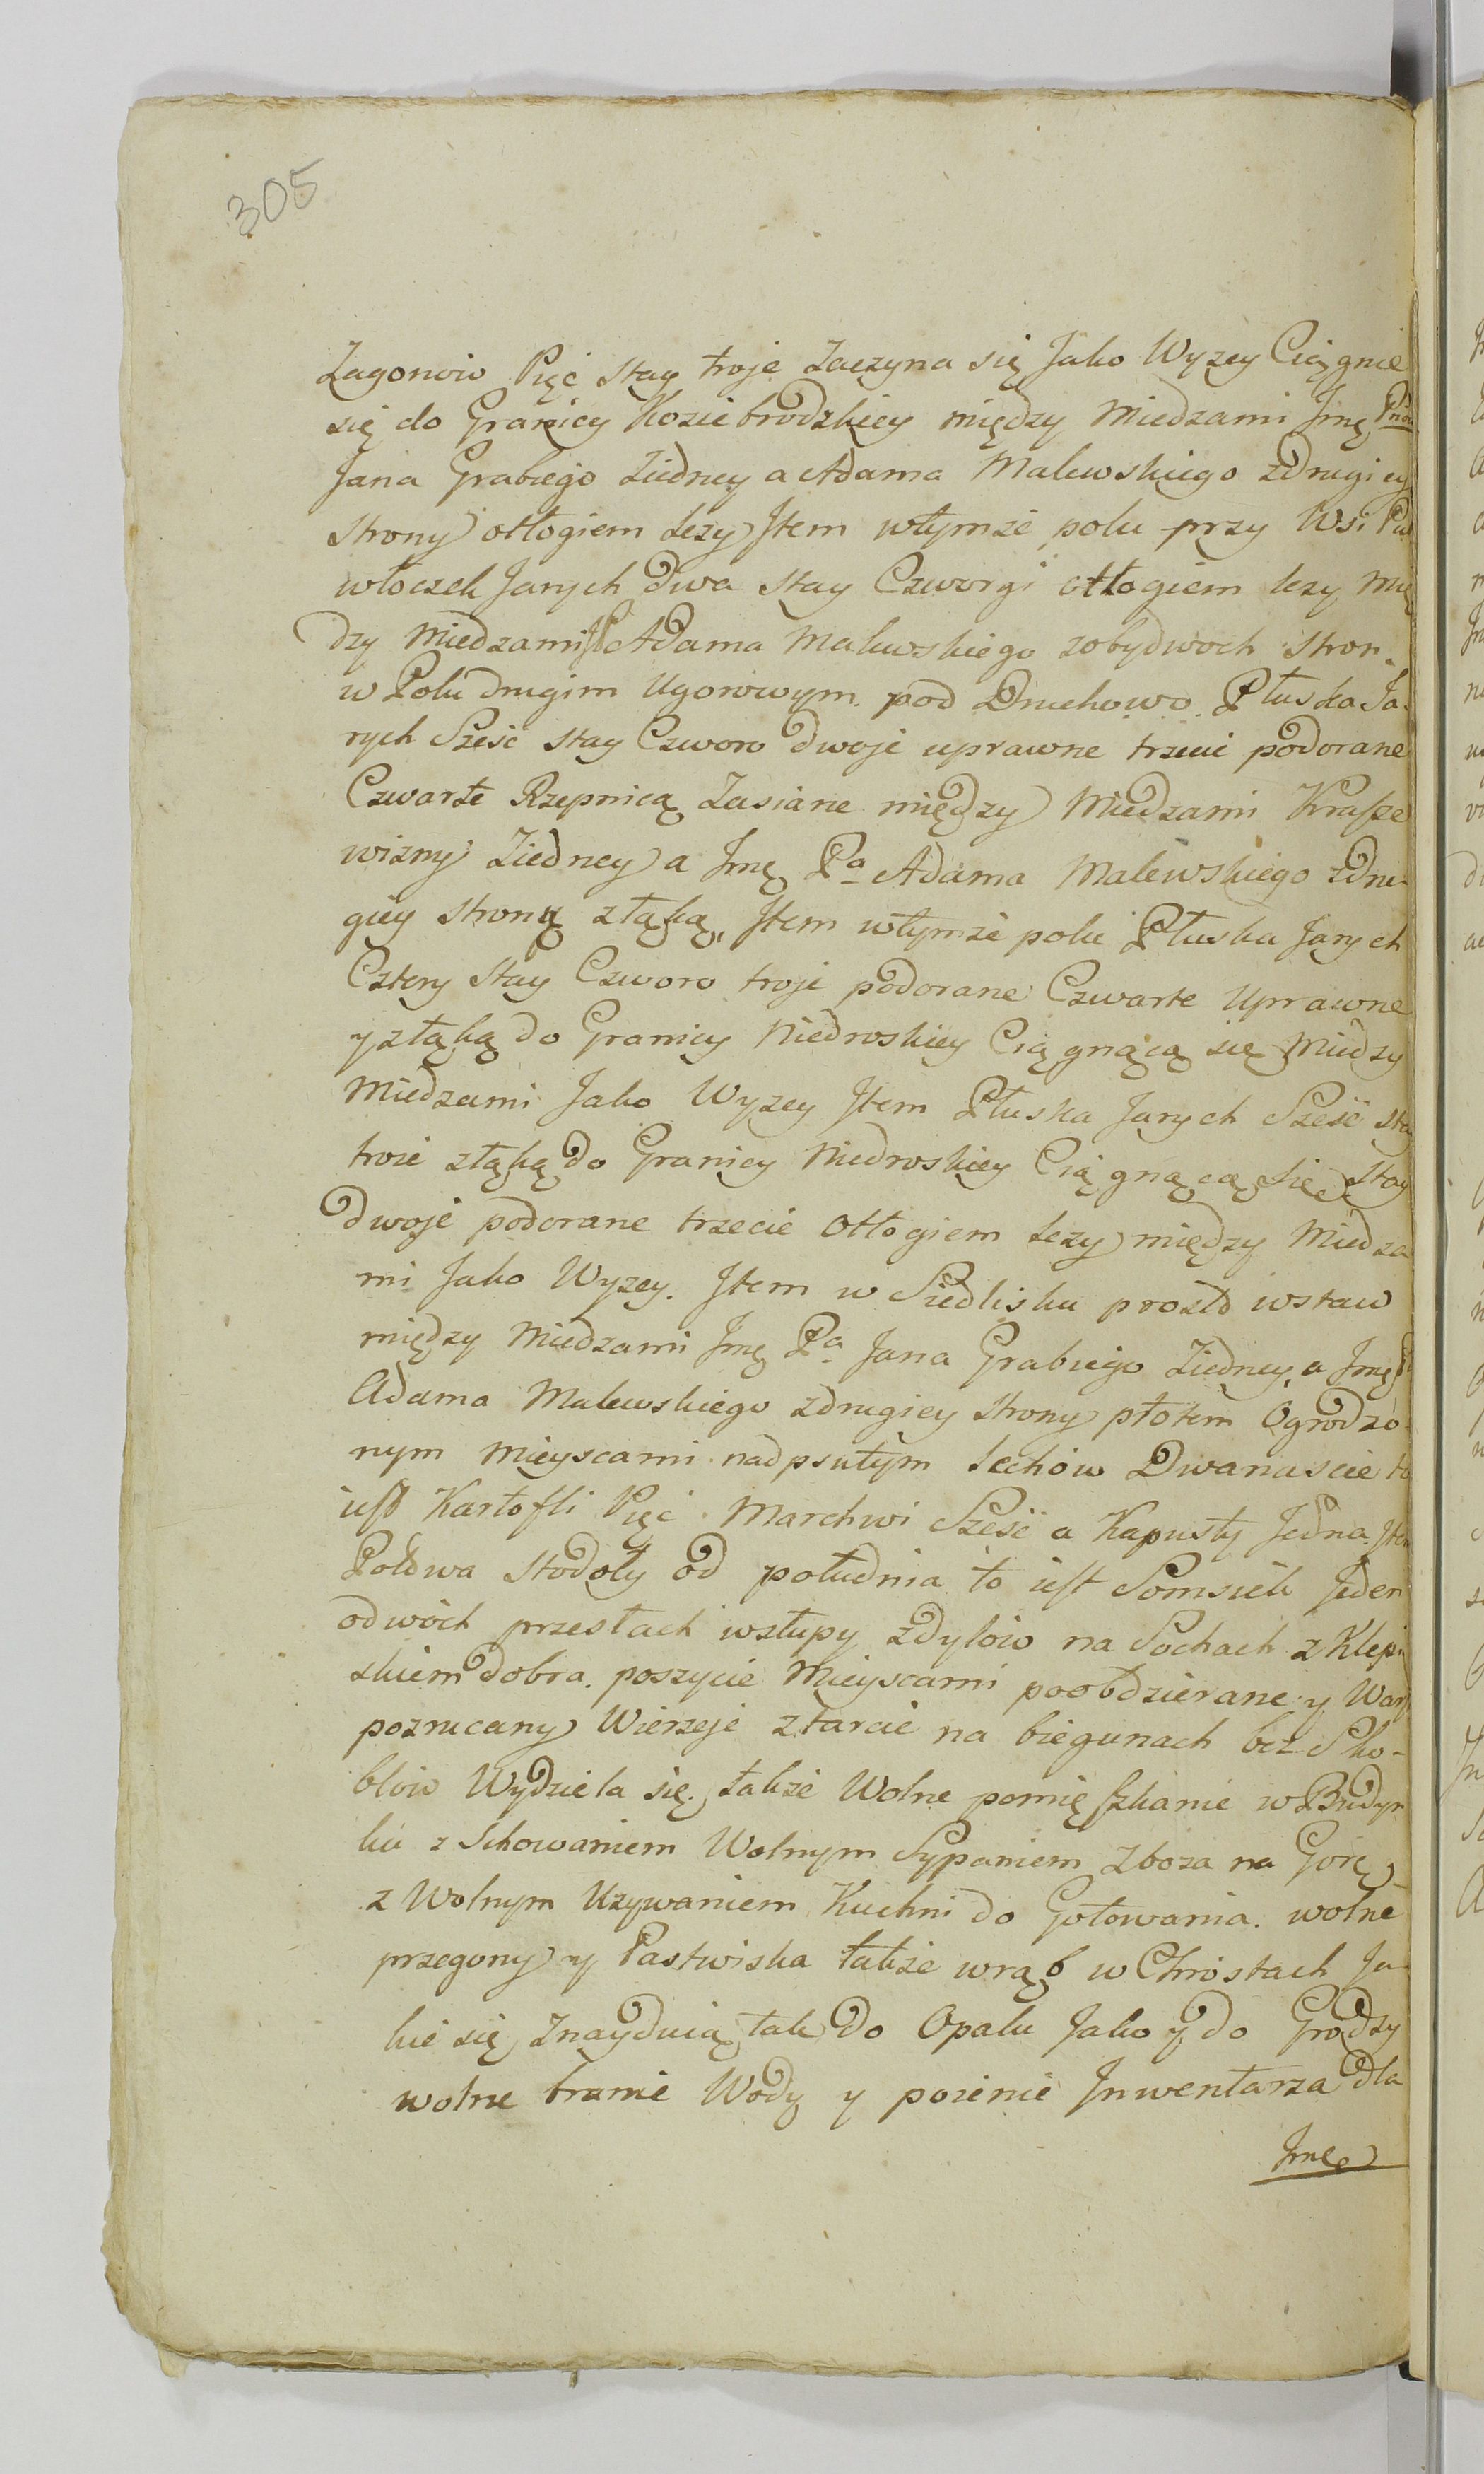 305
Zagonow Pięć stay troje Zaczyna się Jako Wyzey Ciągnie
się do Granicy Koziebrodzkiey między Miedzami Jmę Pna
Jana Grabiego Ziedney a Adama Malewskiego zdrugiey
Strony otłogiem Lezy Jtem wtymże polu przy Wsi
włoczek Jarych dwa stay Czworgi otłogiem lezy mię
dzy Miedzami Adama Malewskiego zobydwoch stron.
w Polu drugim Ugorowym pod Druchowo Płuska Ja-
rych Sześć stay Czworo dwoje uprawne trzecie podorane
Czwarte Rzepnicą Zasiane między Miedzami Krasze
wizny Ziedney a Jmę Pa Adama Malewskiego zdru-
giey strony złąką, Jtem wtymże polu Płuska Jarych
Cztery stay Czworo troje podorane Czwarte Uprawne
y złąką do Granicy Niedroskiey Ciągnącą się Miedzy
Miedzami Jako Wyzey Jtem Płuska Jarych Sześć sta
troie złąką do Granicy Niedroskiey Ciągnącą się Stay
dwoje podorane trzecie Otłogiem Lezy między Miedza
mi Jako Wyzey. Jtem w Siedlisku wstaw
między Miedzami Jmę Pa Jana Grabiego Ziedney a Jmę P
Adama Malewskiego zdrugiey Strony płotem Ogrodzo
nym mieyscami nadpsutym Lechów Dwanascie to
iest Kartofli Pięć Marchwi Sześć a Kapusty Jedna. Jtem
Połowa Stodoły od południa to iest Somsiek Jeden
odwóch przesłach wsłupy zdylów na Sochach z Klepi
skiem dobra. poszycie Mieyscami poobdzierane y War
pozrucany Wierzeje ztarcic na biegunach bez Sko-
blów Wydziela się. także Wolne pomięszkanie w Budyn
ku z Schowaniem Wolnym Sypaniem Zboza na Gorę
z Wolnym Uzywaniem Kuchni do Gotowania. wolne
przegony y Pastwiska także wrąb w Chrostach Ja-
kie się Znayduią tak do Opału Jako y do Grodzy
wolne branie Wody y poienie Jnwentarza dla
Jmę